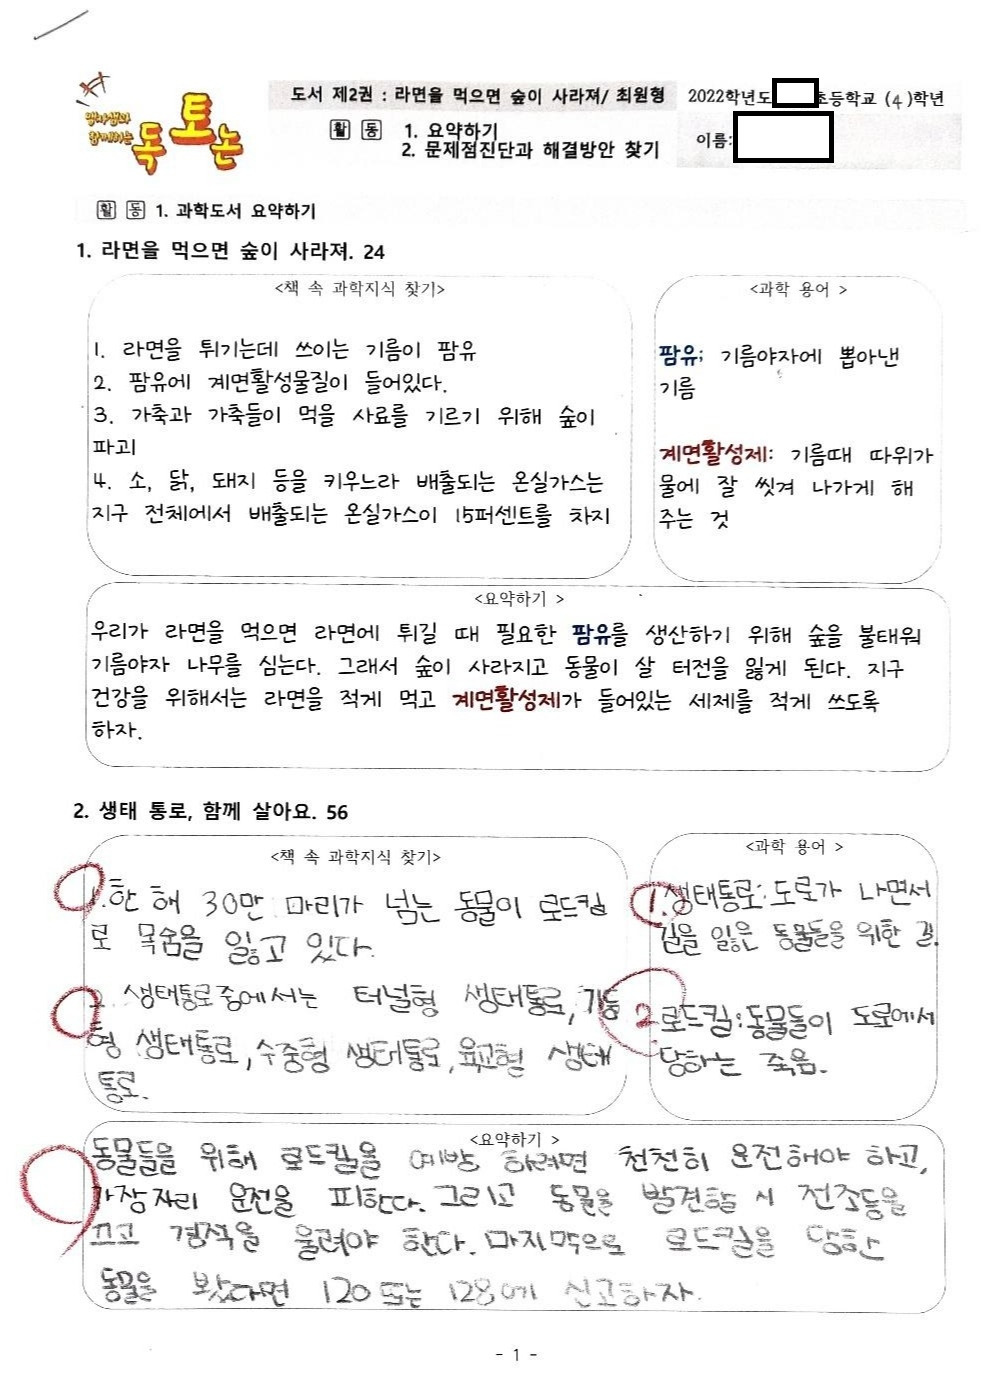 맹자샘과
함께하는
독토논
도서 제2권 : 라면을 먹으면 숲이 사라져/ 최원형
활 동 1. 요약하기
2. 문제점진단과 해결방안 찾기
2022학년도 초등학교 (4)학년
이름:
활 동 1. 과학도서 요약하기
1. 라면을 먹으면 숲이 사라져. 24
<책 속 과학지식 찾기>
1. 라면을 튀기는데 쓰이는 기름이 팜유
2. 팜유에 계면활성물질이 들어있다.
3. 가축과 가축들이 먹을 사료를 기르기 위해 숲이
파괴
4. 소, 닭, 돼지 등을 키우느라 배출되는 온실가스는
지구 전체에서 배출되는 온실가스이 15퍼센트를 차지
<과학 용어 >
팜유; 기름야자에 뽑아낸
기름
계면활성제: 기름때 따위가
물에 잘 씻겨 나가게 해
주는 것
<요약하기 >
우리가 라면을 먹으면 라면에 튀길 때 필요한 팜유를 생산하기 위해 숲을 불태워
기름야자 나무를 심는다. 그래서 숲이 사라지고 동물이 살 터전을 잃게 된다. 지구
건강을 위해서는 라면을 적게 먹고 계면활성제가 들어있는 세제를 적게 쓰도록
하자.
2. 생태 통로, 함께 살아요. 56
<책 속 과학지식 찾기>
1. 한 해 30만 마리가 넘는 동물이 로드킬
로 목숨을 잃고 있다.
2. 생태통로중에서는 터널형 생태통로, 기둥
형 생태통로, 수중형 생태통로, 육교형 생태
통로.
<과학 용어 >
1. 생태통로: 도로가 나면서
길을 잃은 동물들을 위한 길.
2. 로드킬: 동물들이 도로에서
당하는 죽음.
<요약하기 >
동물들을 위해 로드킬을 예방 하려면 천천히 운전해야 하고,
가장자리 운전을 피한다. 그리고 동물을 발견할 시 전조등을
끄고 경적을 울려야 한다. 마지막으로 로드킬을 당한
동물을 봤다면 120 또는 128에 신고하자.
- 1 -